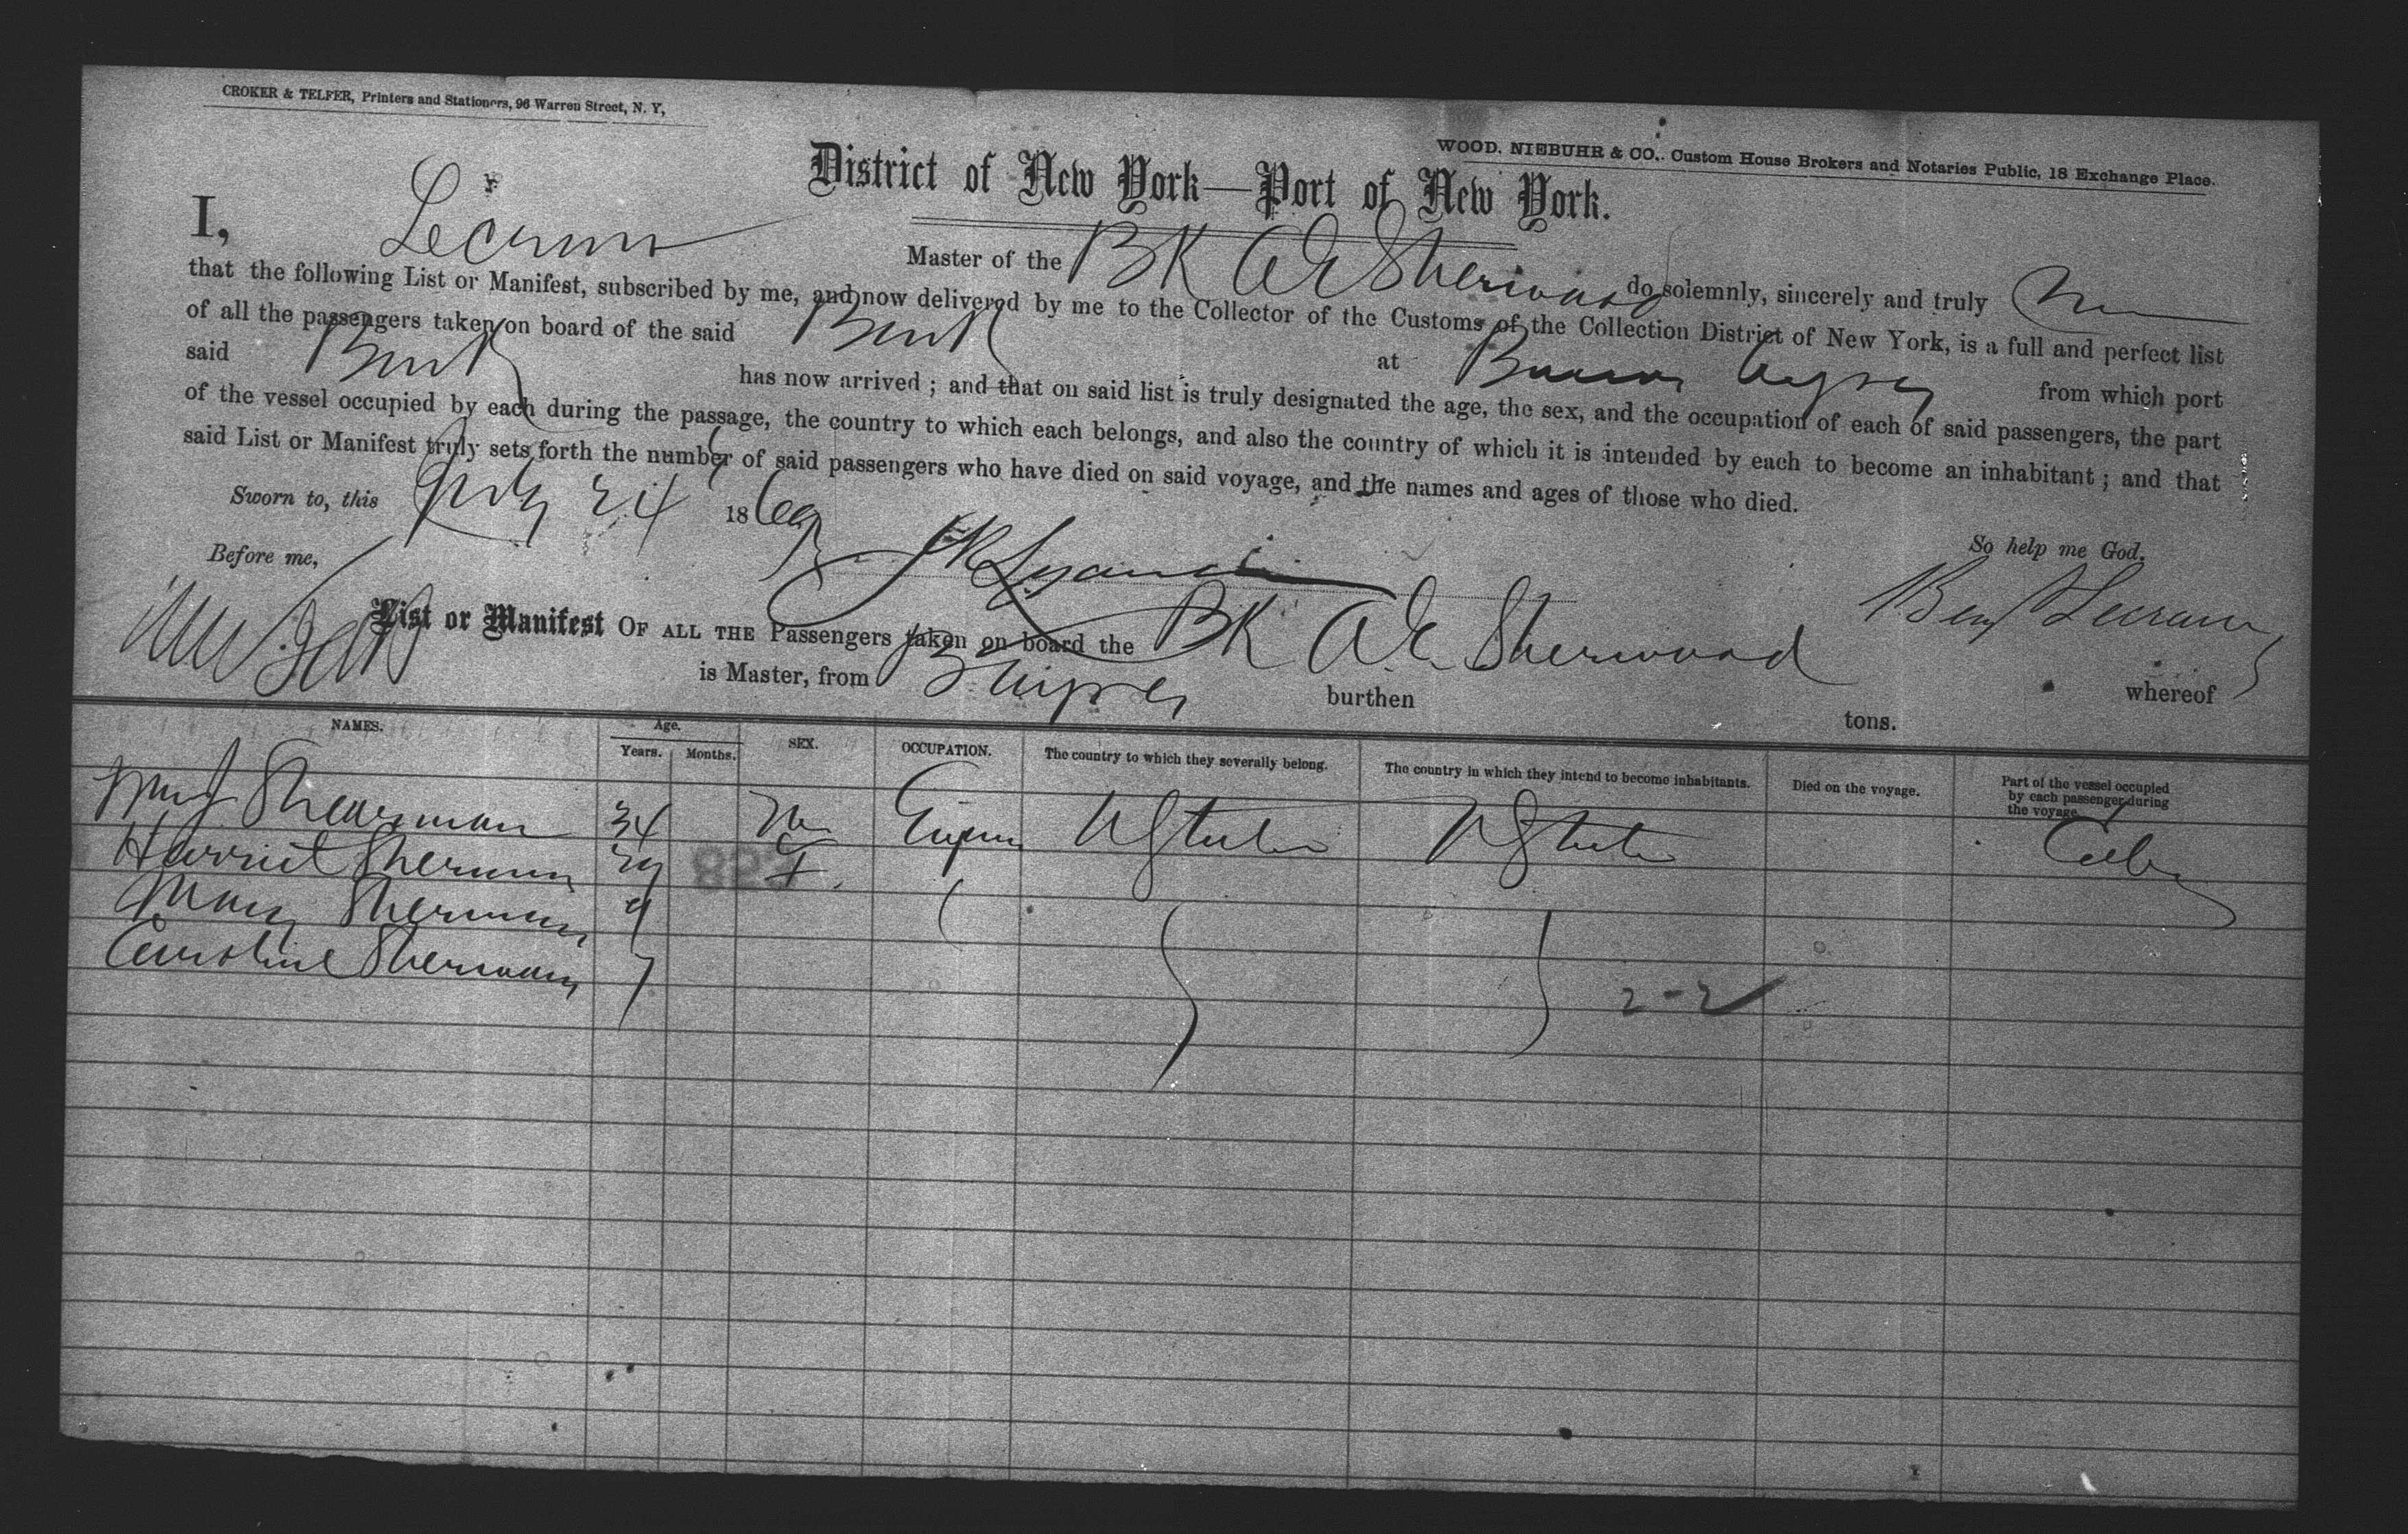 CROKER & TELFER, Printers and Stationers, 96 Warren Street, N. Y,
WOOD, NIEBUHR & CO., Custom House Brokers and Notaries Public, 18 Exchange Place.
District of New York—Port of New York.
I, Lecraw Master of the BK A E Sherwood do solemnly, sincerely and truly
that the following List or Manifest, subscribed by me, and now delivered by me to the Collector of the Customs of the Collection District of New York, is a full and perfect list
of all the passengers taken on board of the said Bark at Buenos Ayres from which port
said Bark has now arrived ; and that on said list is truly designated the age, the sex, and the occupation of each of said passengers, the part
of the vessel occupied by each during the passage, the country to which each belongs, and also the country of which it is intended by each to become an inhabitant ; and that
said List or Manifest truly sets forth the number of said passengers who have died on said voyage, and the names and ages of those who died.
Sworn to, this July 24 1869
So help me God.
Before me,
Benj Lecraw
List or Manifest OF ALL THE Passengers taken on board the BK A. E. Sherwood whereof
is Master, from B Ayres burthen tons.
NAMES. Age. Years. Months. SEX. OCCUPATION. The country to which they severally belong. The country in which they intend to become inhabitants. Died on the voyage. Part of the vessel occupied by each passenger during the voyage.
Shearman 34 M U States U States
Harriet Sherman 29 F
Mary Sherman 9
Caroline Sherman 7
2-2